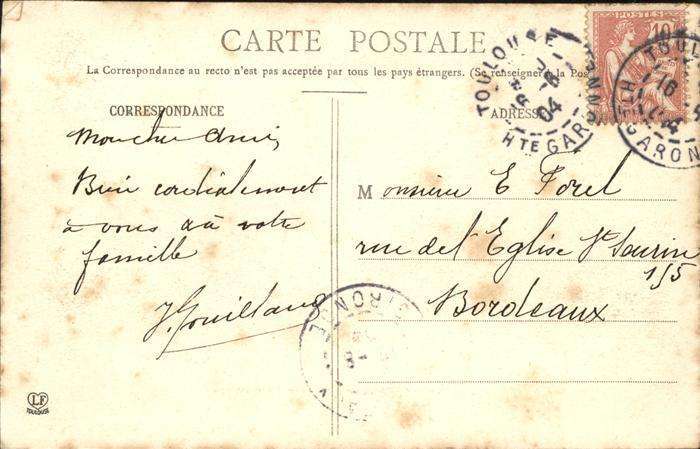 CARTE POSTALE
La Correspondance au recto n'est pas acceptée par tous les pays étrangers. (Se renseigner à la Pos
CORRESPONDANCE
ADRESSE
Mon cher Ami,
Bien cordialement
à vous & à votre
famille
Monsieur E Forel
rue de l'Eglise St Seurin
115
Bordeaux
POSTES
10
TOULOUSE
04
HTE GARONNE
TOUL
16
GARON
GIRONDE
LF
TOULOUSE